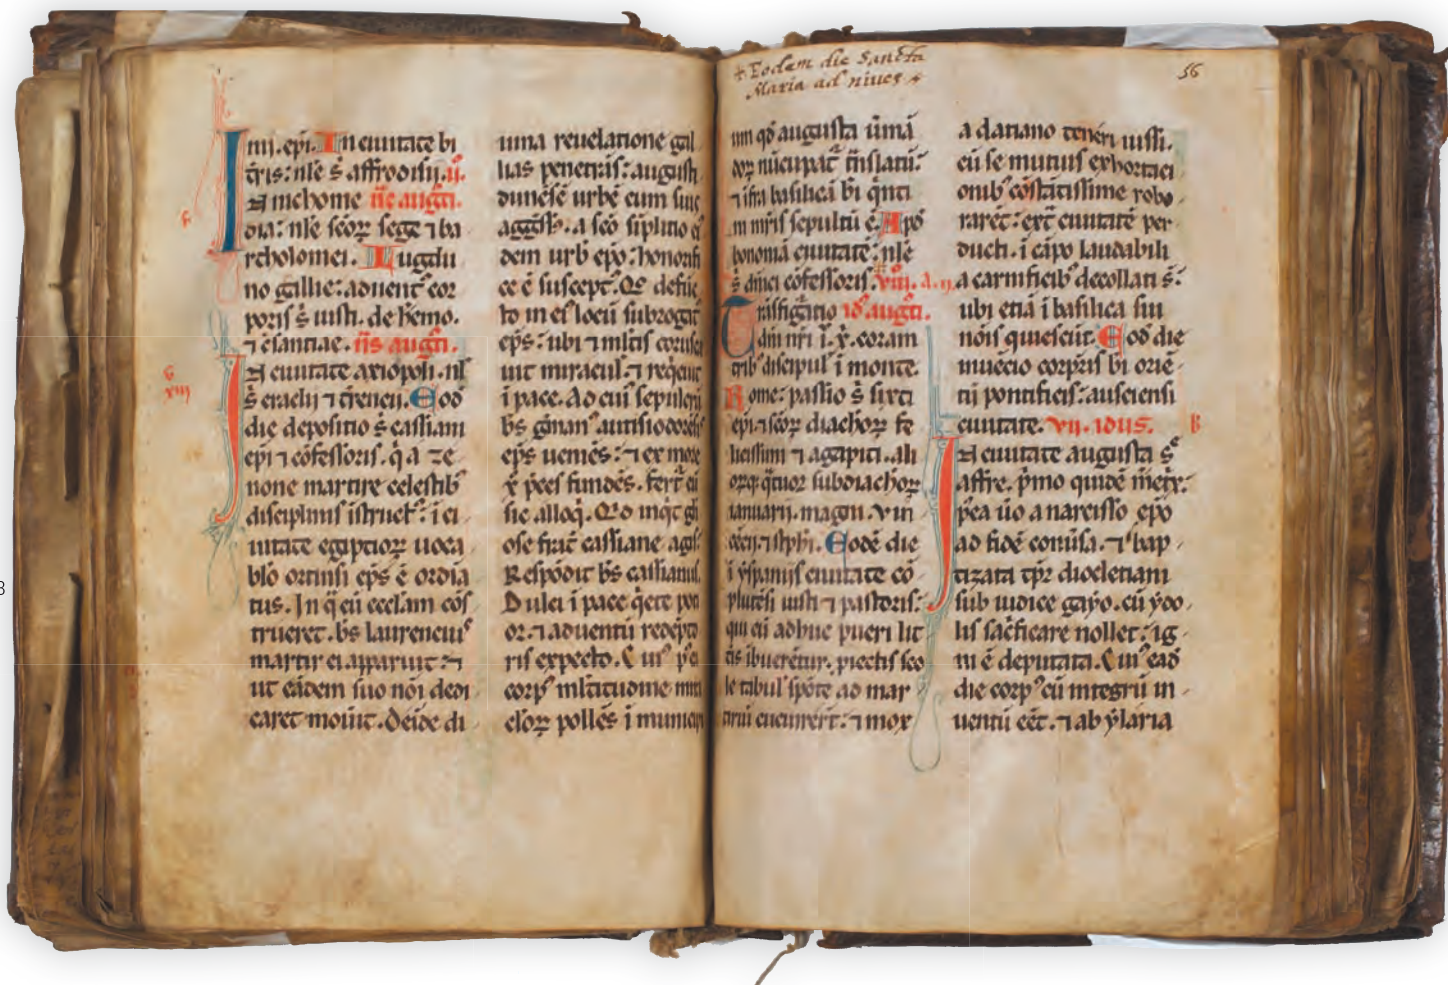 ini. epi. In ciuitate bi
t̄ris: nłe s̄ affrodisii. ii.
In nichome ne augti.
dia: nłe scoꝝ sege ⁊ ba
rtholomei. Lugdu
no gallie: aduent᷒ cor
poris s̄ iusti. de hemo.
non augti.
In ciuitate axiopoli. nł
s̄ eraclii ⁊ Eod
die depositio s̄ cassiani
epi ⁊ cōfessoris. q̄ a ze
none martire celestib᷒
disciplinis īstruct᷒: ī ci
uitate egiptioꝝ uoca
blo ortinsi ep̄s ē ordīa
tus. In q̄ cū ecclam cōs
trueret. bs laurencius
martir ei apparuit: ⁊
ut eādem suo nōi dedi
caret mōuit. Deīde di
uina reuelatione gal
lias penetrās: augusti
dunēsē urbē cum suis
aggss᷒. a sco siplitio ei᷒
dem urb epo: honorifi
ce ē suscept᷒. Q̄ defūc
to in ei᷒ locū subrogat᷒
ep̄s: ubi ⁊ mltis corusc
uit miracul᷒. ⁊ reqeuit
ī pace. Ad cui sepulcrū
bs gman᷒ autisiodorēs
ep̄s ueniēs: ⁊ ex more
x̄ pces fundēs. fert᷒ eū
sic alloq. Qd inqt gl
ose frat cassiane agis᷒
Respōdit bs cassianus.
Dulci ī pace qete pot
or. ⁊ aduentū redēpto
ris expecto. Cui᷒ p̄ci
corp᷒ mltitudine mira
cloꝝ pollēs ī municipi
+ Eodem die Sancta
Maria ad niues +
56
um qd augusta uma
doꝝ nūcupat᷒ trāslatū:
⁊ ifra basilicā bi qnti
ni mris sepultū ē. Apd
bononiā ciuitatē: nłe
s̄ dnici cōfessoris. viii. a.
Trāsfigatio id᷒ augti.
dni nri i. x̄. coram
trib᷒ discipul᷒ ī monte.
Rome: passio s̄ sixti
epi ⁊ scoꝝ diachoꝝ fe
licissimi ⁊ agapiti. ali
orqꝫ qtuor subdiachoꝝ
ianuarii. magni. vin
cēcii. ⁊ stphi. Eodē die
ī yspaniis ciuitate cō
plutēsi iusti ⁊ pastoris:
qui cū adhuc pueri lit
tis ībuerētur. piectis sco
le tabul᷒ spōte ad mar
tiriū cucurrerūt: ⁊ mox
a datiano teneri iussi.
cū se mutuis exhortaci
onib᷒ cōstātissime robo
rarēt: ext᷒ ciuitatē per
ducti. ī cāpo laudabili
a carnificib᷒ decollati s̄:
ubi etiā ī basilica sui
nōis quiescūt. Eod die
muēcio corpris bi oriē
tii pontificis: ausciensi
ciuitate. vii. idus.
In ciuitate augusta s̄
affre. pmo quidē metx:
pea uo a narcisso epo
ad fidē conūsa. ⁊ bap
tizata tpr diocletiani
sub iudice gayo. cū ydo
lis sacficare nollet: ig
ni ē deputata. Cui᷒ ead
die corp᷒ cū integrū in
uentū eēt. ⁊ ab ylaria